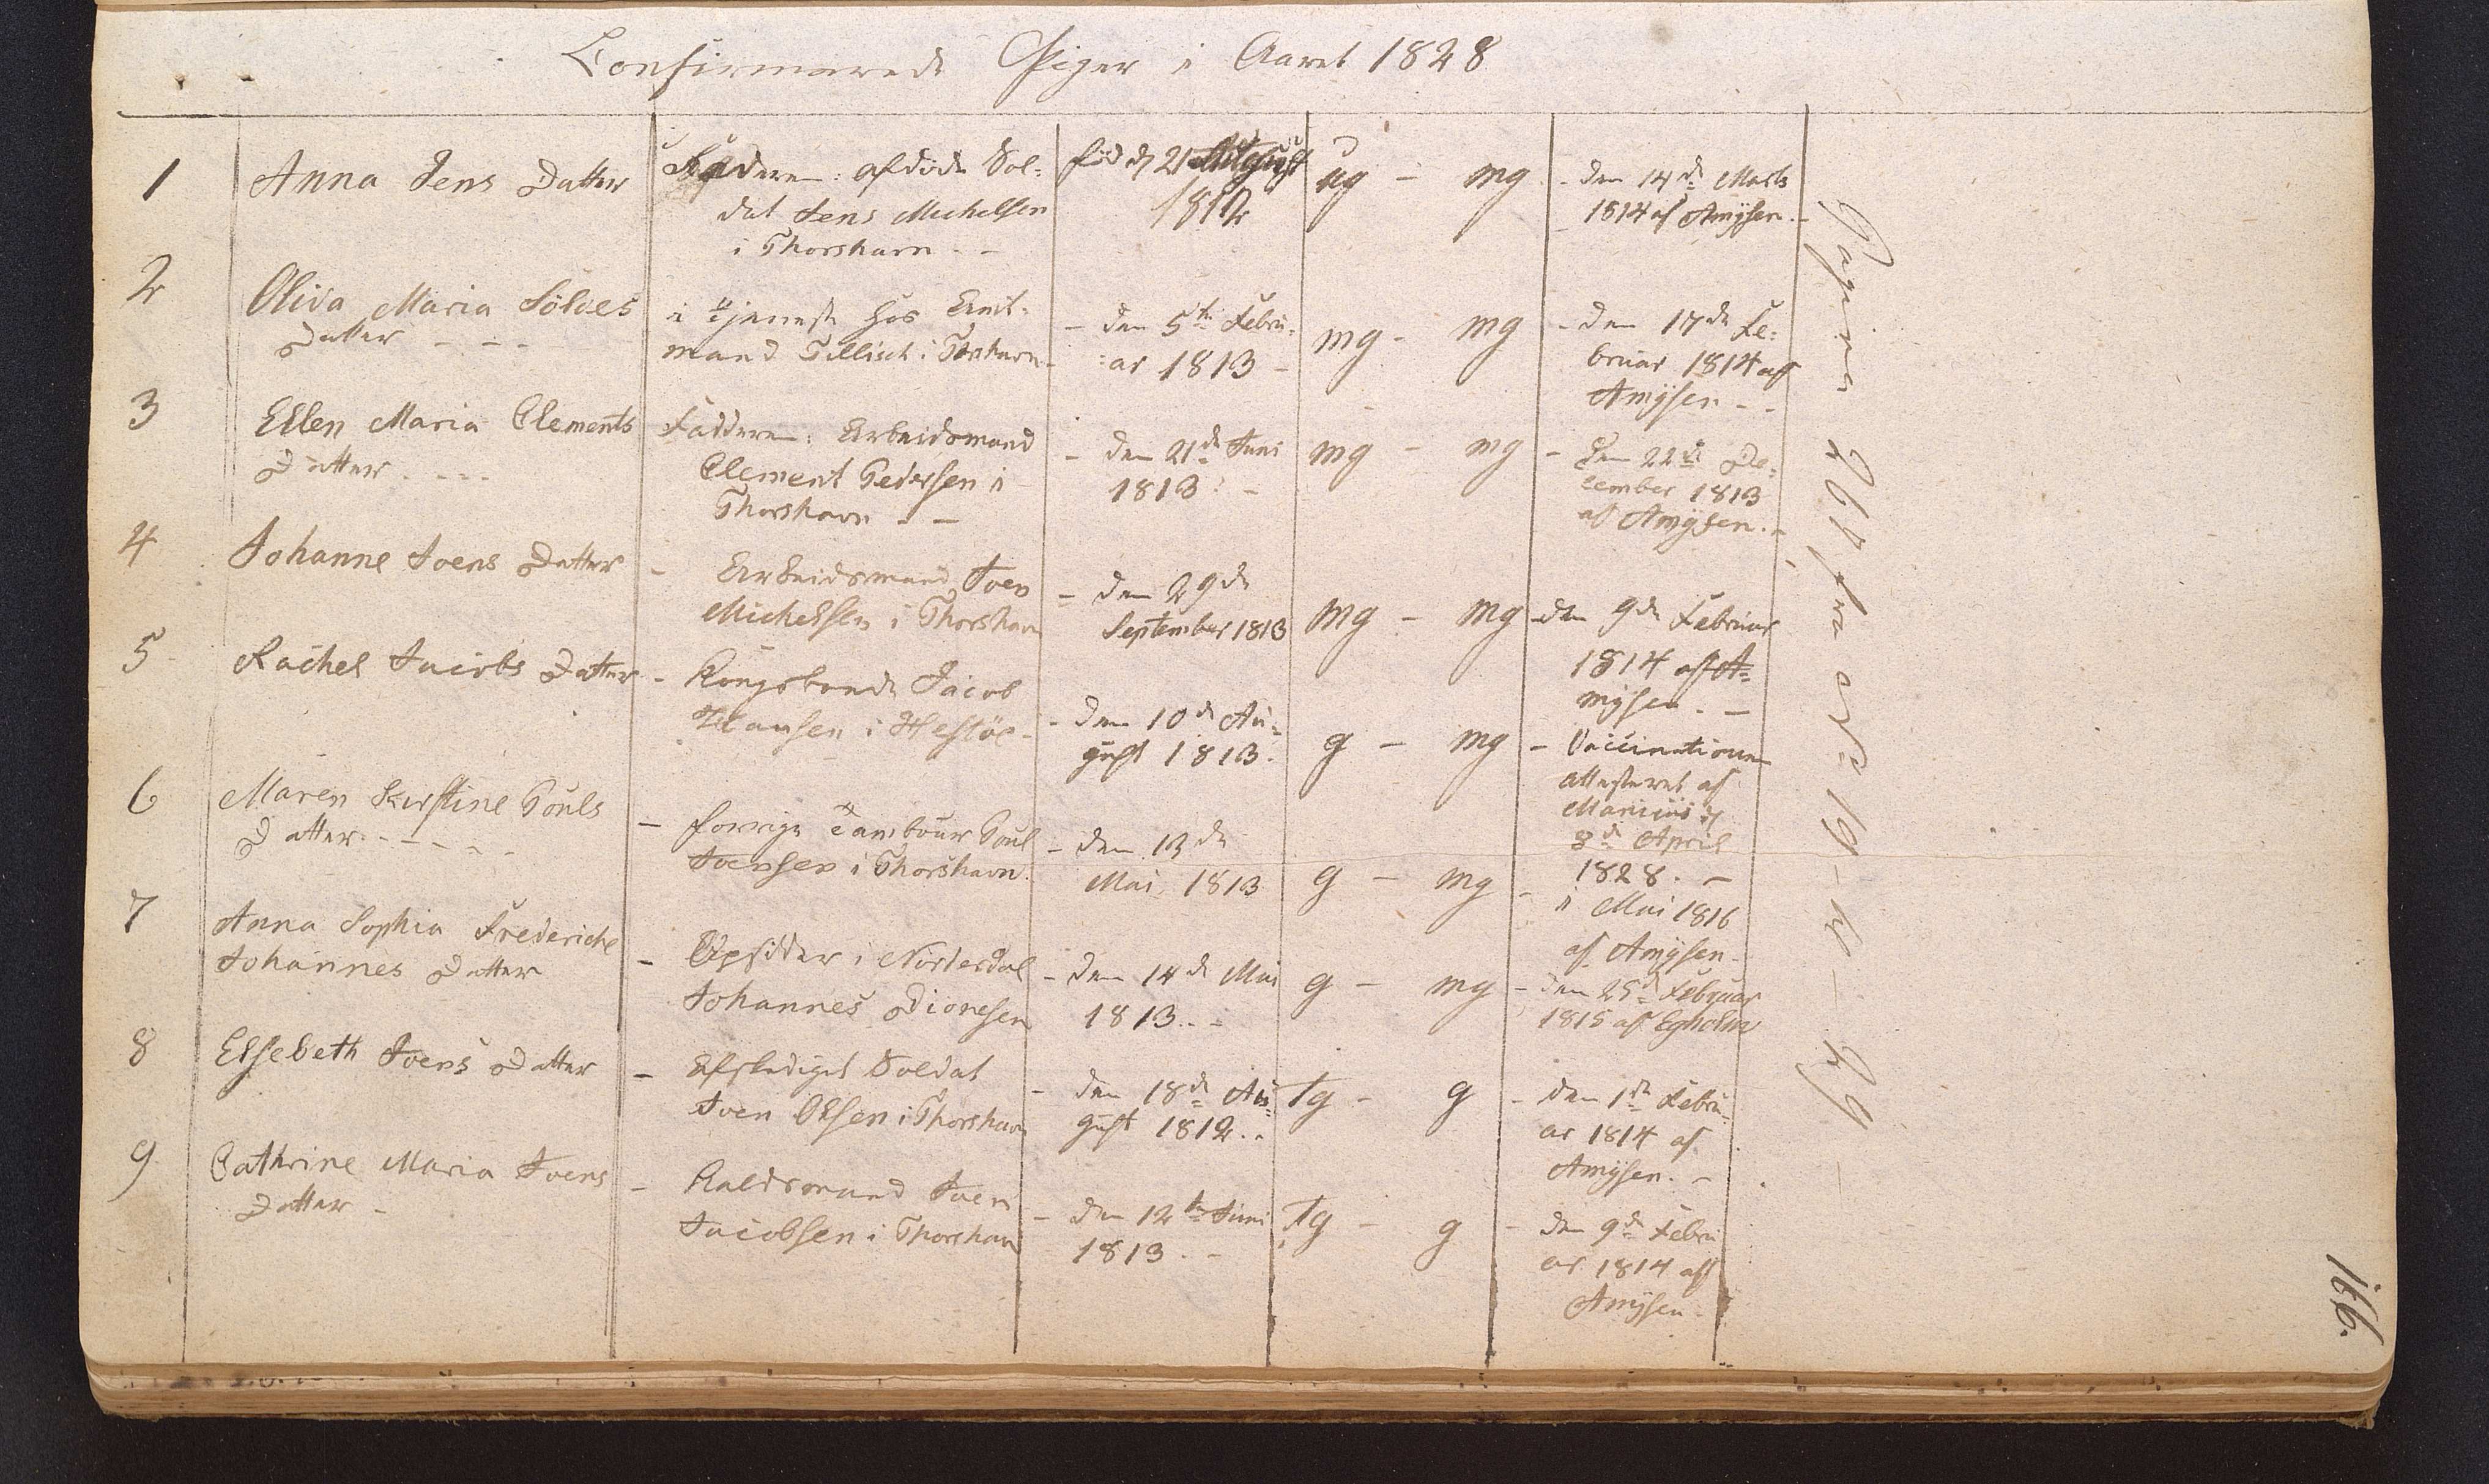 Confirmerede Piger i Aaret 1828
1 Anna Jens Datter
Faderen: afdöde Sol-
dat Jens Michelsen
i Thorshavn - -
föd d 21 August
1812
ug - mg
- den 14de Marts
1814 af Amÿsen. -
2 Oliva Maria Sölves
Datter - - -
i Tjeneste hos Amt-
mand Tillisch i Thorshavn -
- den 5te Febru-
ar 1813 -
mg - mg
- den 17de Fe-
bruar 1814 af
Amÿsen - -
3 Ellen Maria Clements
Datter - - -
Faderen: Arbeidsmand
Clement Pedersen i
Thorshavn - -
- den 21de Juni
1813. -
mg - mg
- den 22de De-
cember 1813
af Amÿsen. -
4 Johanne Joens Datter
- Arbeidsmand Joen
Michelsen i Thorshavn
- den 29de
September 1813
mg - mg
- den 9de Februar
1814 af A-
mÿsen. -
5 Rachel Jacobs Datter
- Kongsbonde Jacob
Hansen i Hestöe -
- den 10de Au-
gust 1813.
g - mg
- Vaccinationen
attesteret af
Manicus d
8de April
1828. -
6 Maren Kirstine Pouls
Datter - - - - -
- forrige Tambour Poul
Joensen i Thorshavn.
- den 13de
Mai 1813
g - mg
- i Mai 1816
af Amÿsen -
7 Anna Sophia Frederiche
Johannes Datter
- Opsidder i Norderdal
Johannes Dionesen
- den 14de Mai
1813. - -
g - mg
- den 25de Februar
1815 af Egholm
8 Elsebeth Joens Datter
- Afskediget Soldat
Joen Olsen i Thorshavn
- den 18de Au-
gust 1812. -
Tg - g
- den 1ste Febru-
ar 1814 af
Amÿsen. -
9 Cathrine Maria Joens
Datter -
- Kaldsmand Joen
Jacobsen i Thorshavn
- den 12te Juni
1813. -
Tg - g
- den 9de Febru
ar 1814 af
Amÿsen -
Pagina 264 fra
166.